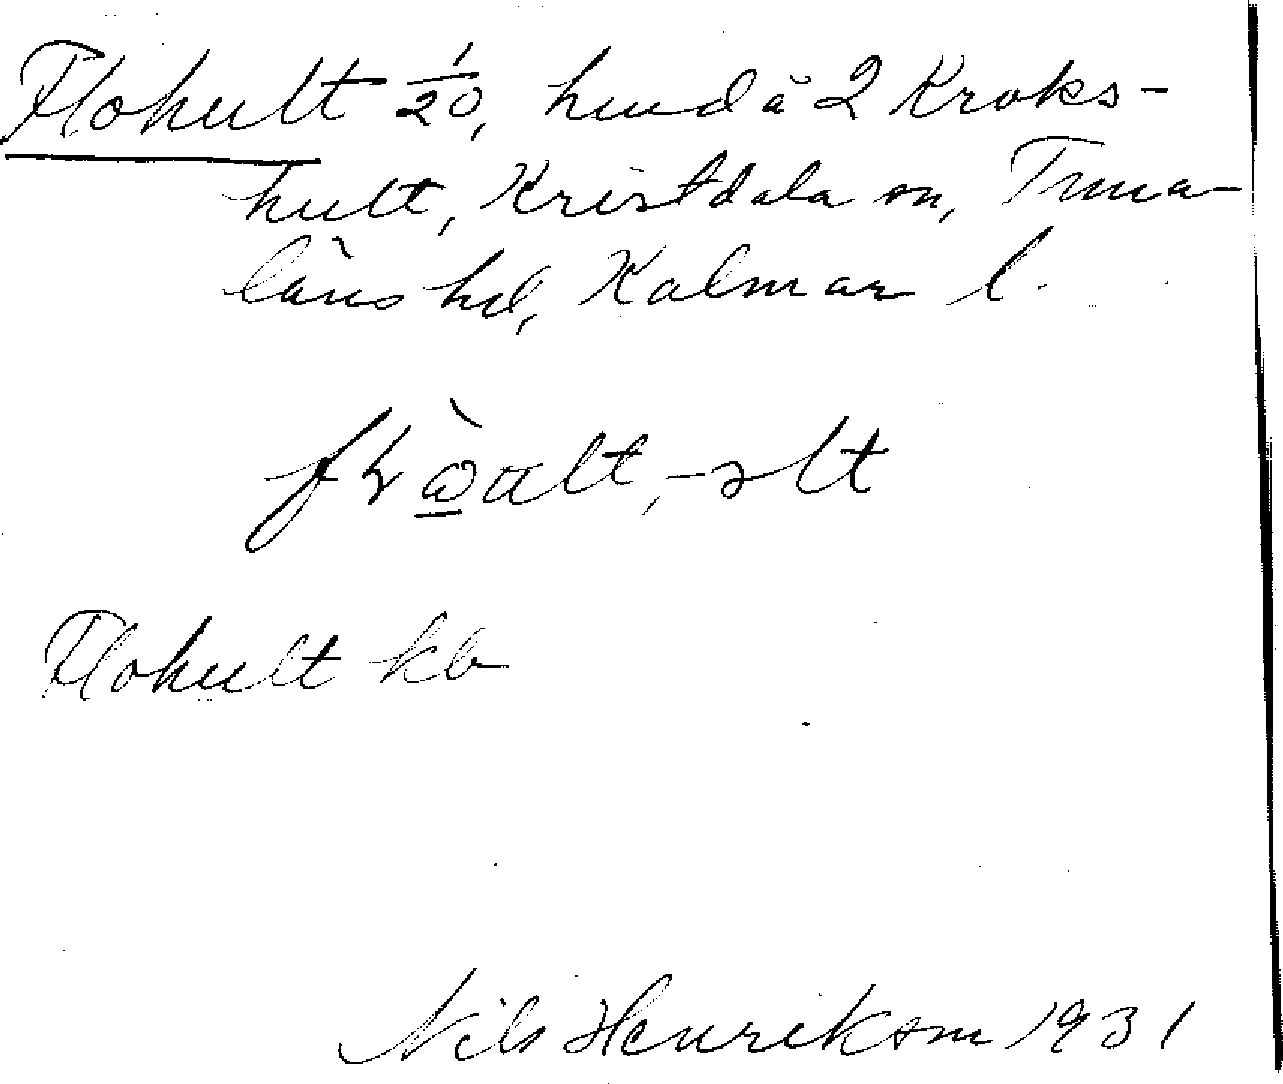 Flohult 1/20, hmd å 2 Kroks-
hult, Kristdala sn, Tuna-
läns hd, Kalmar l.
Flohult kb
Nils Henrikson 1931